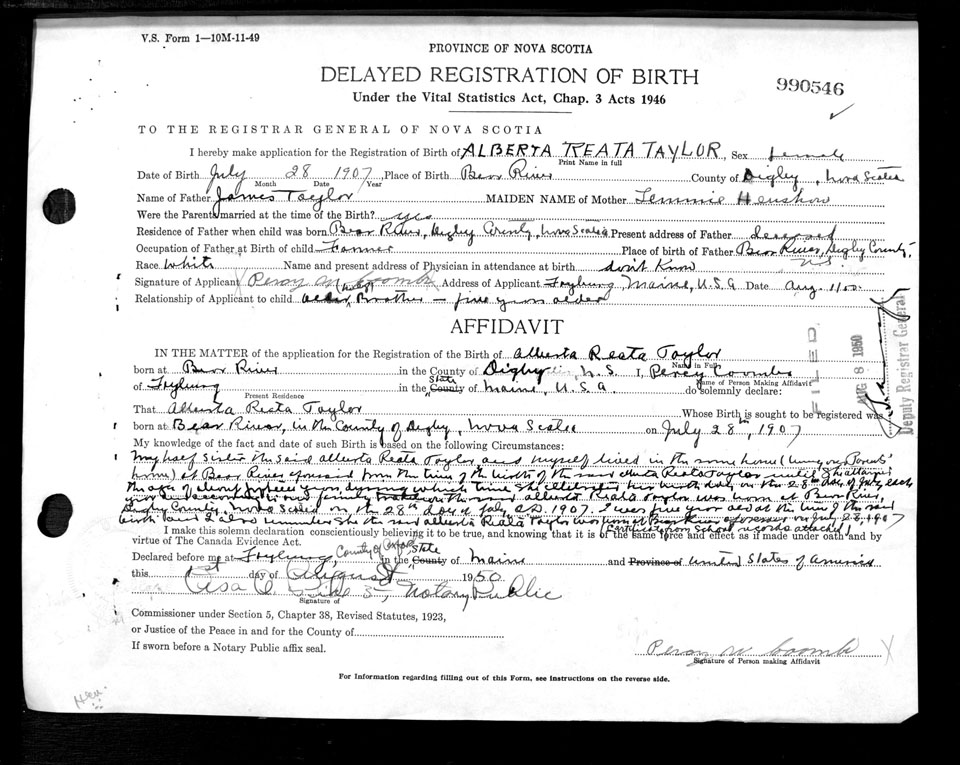 V.S. Form 1—10M-11-49
PROVINCE OF NOVA SCOTIA
DELAYED REGISTRATION OF BIRTH
990546
Under the Vital Statistics Act, Chap. 3 Acts 1946
TO THE REGISTRAR GENERAL OF NOVA SCOTIA
I hereby make application for the Registration of Birth of ALBERTA REATA TAYLOR, Sex female
Print Name in full
Date of Birth July 28 1907 Place of Birth Bear River County of Digby, Nova Scotia
Month Date Year
Name of Father James Taylor MAIDEN NAME of Mother Jemmie Henshow
Were the Parents married at the time of the Birth? yes
Residence of Father when child was born Bear River, Digby County, Nova Scotia Present address of Father deceased
Occupation of Father at Birth of child Farmer Place of birth of Father Bear River, Digby County,
Race White Name and present address of Physician in attendance at birth don't know N.S.
Signature of Applicant Percy W Coombs Address of Applicant Fryburg, Maine, U.S.A Date Aug. 1/50.
Relationship of Applicant to child older (half) Brother — five years older
AFFIDAVIT
IN THE MATTER of the application for the Registration of the Birth of Alberta Reata Taylor
Name in Full
born at Bear River in the County of Digby N.S. I, Percy Coombs
Name of Person Making Affidavit
of Fryburg in the County State of Maine, U.S.A. do solemnly declare:
Present Residence
That Alberta Reata Taylor Whose Birth is sought to be registered was
born at Bear River, in the County of Digby, Nova Scotia on July 28th, 1907
My knowledge of the fact and date of such Birth is based on the following Circumstances:
My half sister the said Alberta Reata Taylor and myself lived in the same home (
home) at Bear River aforesaid from the time of the birth of the said Alberta Reata Taylor until she attained
the age of about years during which time she celebrated her birth day on the 28th day of July each
year family the said Alberta Reata Taylor was born at Bear River,
Digby County, Nova Scotia on the 28th day of July A.D. 1907. I was five years old at the time of the said
birth and I also remember the said Alberta Reata Taylor was born at Bear River aforesaid on July 28, 1907
school records attached
I make this solemn declaration conscientiously believing it to be true, and knowing that it is of the same force and effect as if made under oath and by
virtue of The Canada Evidence Act.
Declared before me at Fryburg, County of Oxford in the County State of Maine and Province of United States of America
this 1st day of August 1950
Notary Public
Signature of
Commissioner under Section 5, Chapter 38, Revised Statutes, 1923,
or Justice of the Peace in and for the County of
If sworn before a Notary Public affix seal.
Percy W Coombs
Signature of Person making Affidavit
For Information regarding filling out of this Form, see instructions on the reverse side.
FILED
AUG 8 1950
Deputy Registrar General